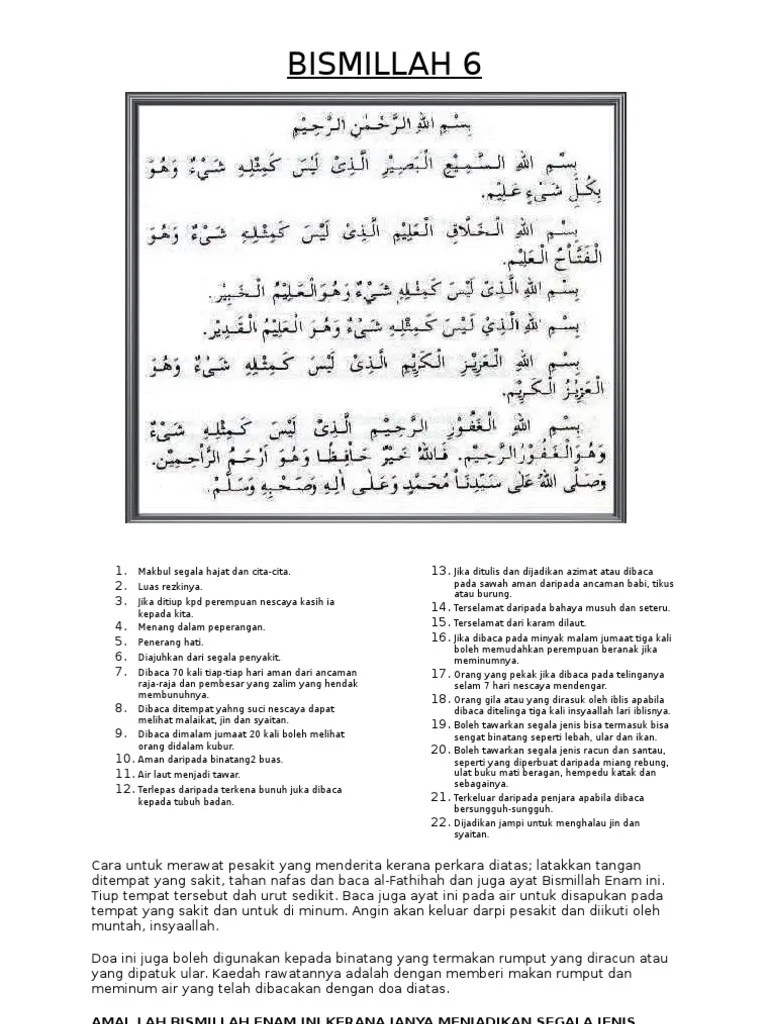 BISMILLAH 6
بِسْمِ اللهِ الرَّحْمٰنِ الرَّحِيْمِ
بِسْمِ اللهِ السَّمِيْعِ الْبَصِيْرِ الَّذِىْ لَيْسَ كَمِثْلِهِ شَىْءٌ وَهُوَ
بِكُلِّ شَىْءٍ عَلِيْم.
بِسْمِ اللهِ الْخَلَّاقِ الْعَلِيْمِ الَّذِىْ لَيْسَ كَمِثْلِهِ شَىْءٌ وَهُوَ
الْفَتَّاحُ الْعَلِيْم.
بِسْمِ اللهِ الَّذِىْ لَيْسَ كَمِثْلِهِ شَىْءٌ وَهُوَالْعَلِيْمُ الْخَبِيْر.
بِسْمِ اللهِ الَّذِيْ لَيْسَ كَمِثْلِهِ شَىْءٌ وَهُوَ الْعَلِيْمُ الْقَدِيْر.
بِسْمِ اللهِ الْعَزِيْزِ الْكَرِيْمِ الَّذِىْ لَيْسَ كَمِثْلِهِ شَىْءٌ وَهُوَ
الْعَزِيْزُ الْكَرِيْم.
بِسْمِ اللهِ الْغَفُوْرِ الرَّحِيْمِ الَّذِىْ لَيْسَ كَمِثْلِهِ شَىْءٌ
وَهُوَالْغَفُوْرُالرَّحِيْم. فَاللهُ خَيْرٌ حَافِظًا وَهُوَ أَرْحَمُ الرَّاحِمِيْن.
وَصَلَّى اللهُ عَلَى سَيِّدِنَا مُحَمَّدٍ وَعَلَى اٰلِهِ وَصَحْبِهِ وَسَلَّمْ.
1. Makbul segala hajat dan cita-cita.
2. Luas rezkinya.
3. Jika ditiup kpd perempuan nescaya kasih ia
kepada kita.
4. Menang dalam peperangan.
5. Penerang hati.
6. Diajuhkan dari segala penyakit.
7. Dibaca 70 kali tiap-tiap hari aman dari ancaman
raja-raja dan pembesar yang zalim yang hendak
membunuhnya.
8. Dibaca ditempat yahng suci nescaya dapat
melihat malaikat, jin dan syaitan.
9. Dibaca dimalam jumaat 20 kali boleh melihat
orang didalam kubur.
10. Aman daripada binatang2 buas.
11. Air laut menjadi tawar.
12. Terlepas daripada terkena bunuh juka dibaca
kepada tubuh badan.
13. Jika ditulis dan dijadikan azimat atau dibaca
pada sawah aman daripada ancaman babi, tikus
atau burung.
14. Terselamat daripada bahaya musuh dan seteru.
15. Terselamat dari karam dilaut.
16. Jika dibaca pada minyak malam jumaat tiga kali
boleh memudahkan perempuan beranak jika
meminumnya.
17. Orang yang pekak jika dibaca pada telinganya
selam 7 hari nescaya mendengar.
18. Orang gila atau yang dirasuk oleh iblis apabila
dibaca ditelinga tiga kali insyaallah lari iblisnya.
19. Boleh tawarkan segala jenis bisa termasuk bisa
sengat binatang seperti lebah, ular dan ikan.
20. Boleh tawarkan segala jenis racun dan santau,
seperti yang diperbuat daripada miang rebung,
ulat buku mati beragan, hempedu katak dan
sebagainya.
21. Terkeluar daripada penjara apabila dibaca
bersungguh-sungguh.
22. Dijadikan jampi untuk menghalau jin dan
syaitan.
Cara untuk merawat pesakit yang menderita kerana perkara diatas; latakkan tangan
ditempat yang sakit, tahan nafas dan baca al-Fathihah dan juga ayat Bismillah Enam ini.
Tiup tempat tersebut dah urut sedikit. Baca juga ayat ini pada air untuk disapukan pada
tempat yang sakit dan untuk di minum. Angin akan keluar darpi pesakit dan diikuti oleh
muntah, insyaallah.
Doa ini juga boleh digunakan kepada binatang yang termakan rumput yang diracun atau
yang dipatuk ular. Kaedah rawatannya adalah dengan memberi makan rumput dan
meminum air yang telah dibacakan dengan doa diatas.
AMAL LAH BISMILLAH ENAM INI KERANA IANYA MENJADIKAN SEGALA JENIS